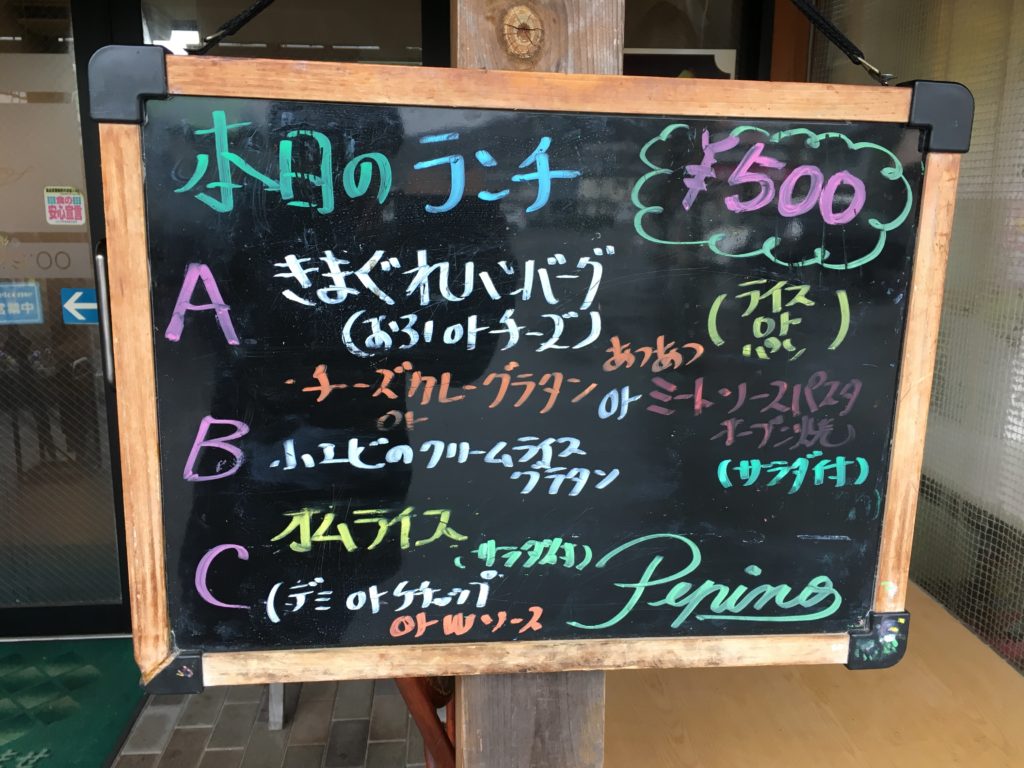 本日の ランチ
¥500
A きまぐれハンバーグ
(おろし or チーズ)
(ライス
or
パン)
・チーズカレーグラタン
or
あつあつ
or ミートソースパスタ
オーブン焼
B 小エビのクリームライス
グラタン
(サラダ付)
C オムライス
(サラダ付)
(デミ or ケチャップ
or Wソース
Pepino
食の
安心宣言
営業中